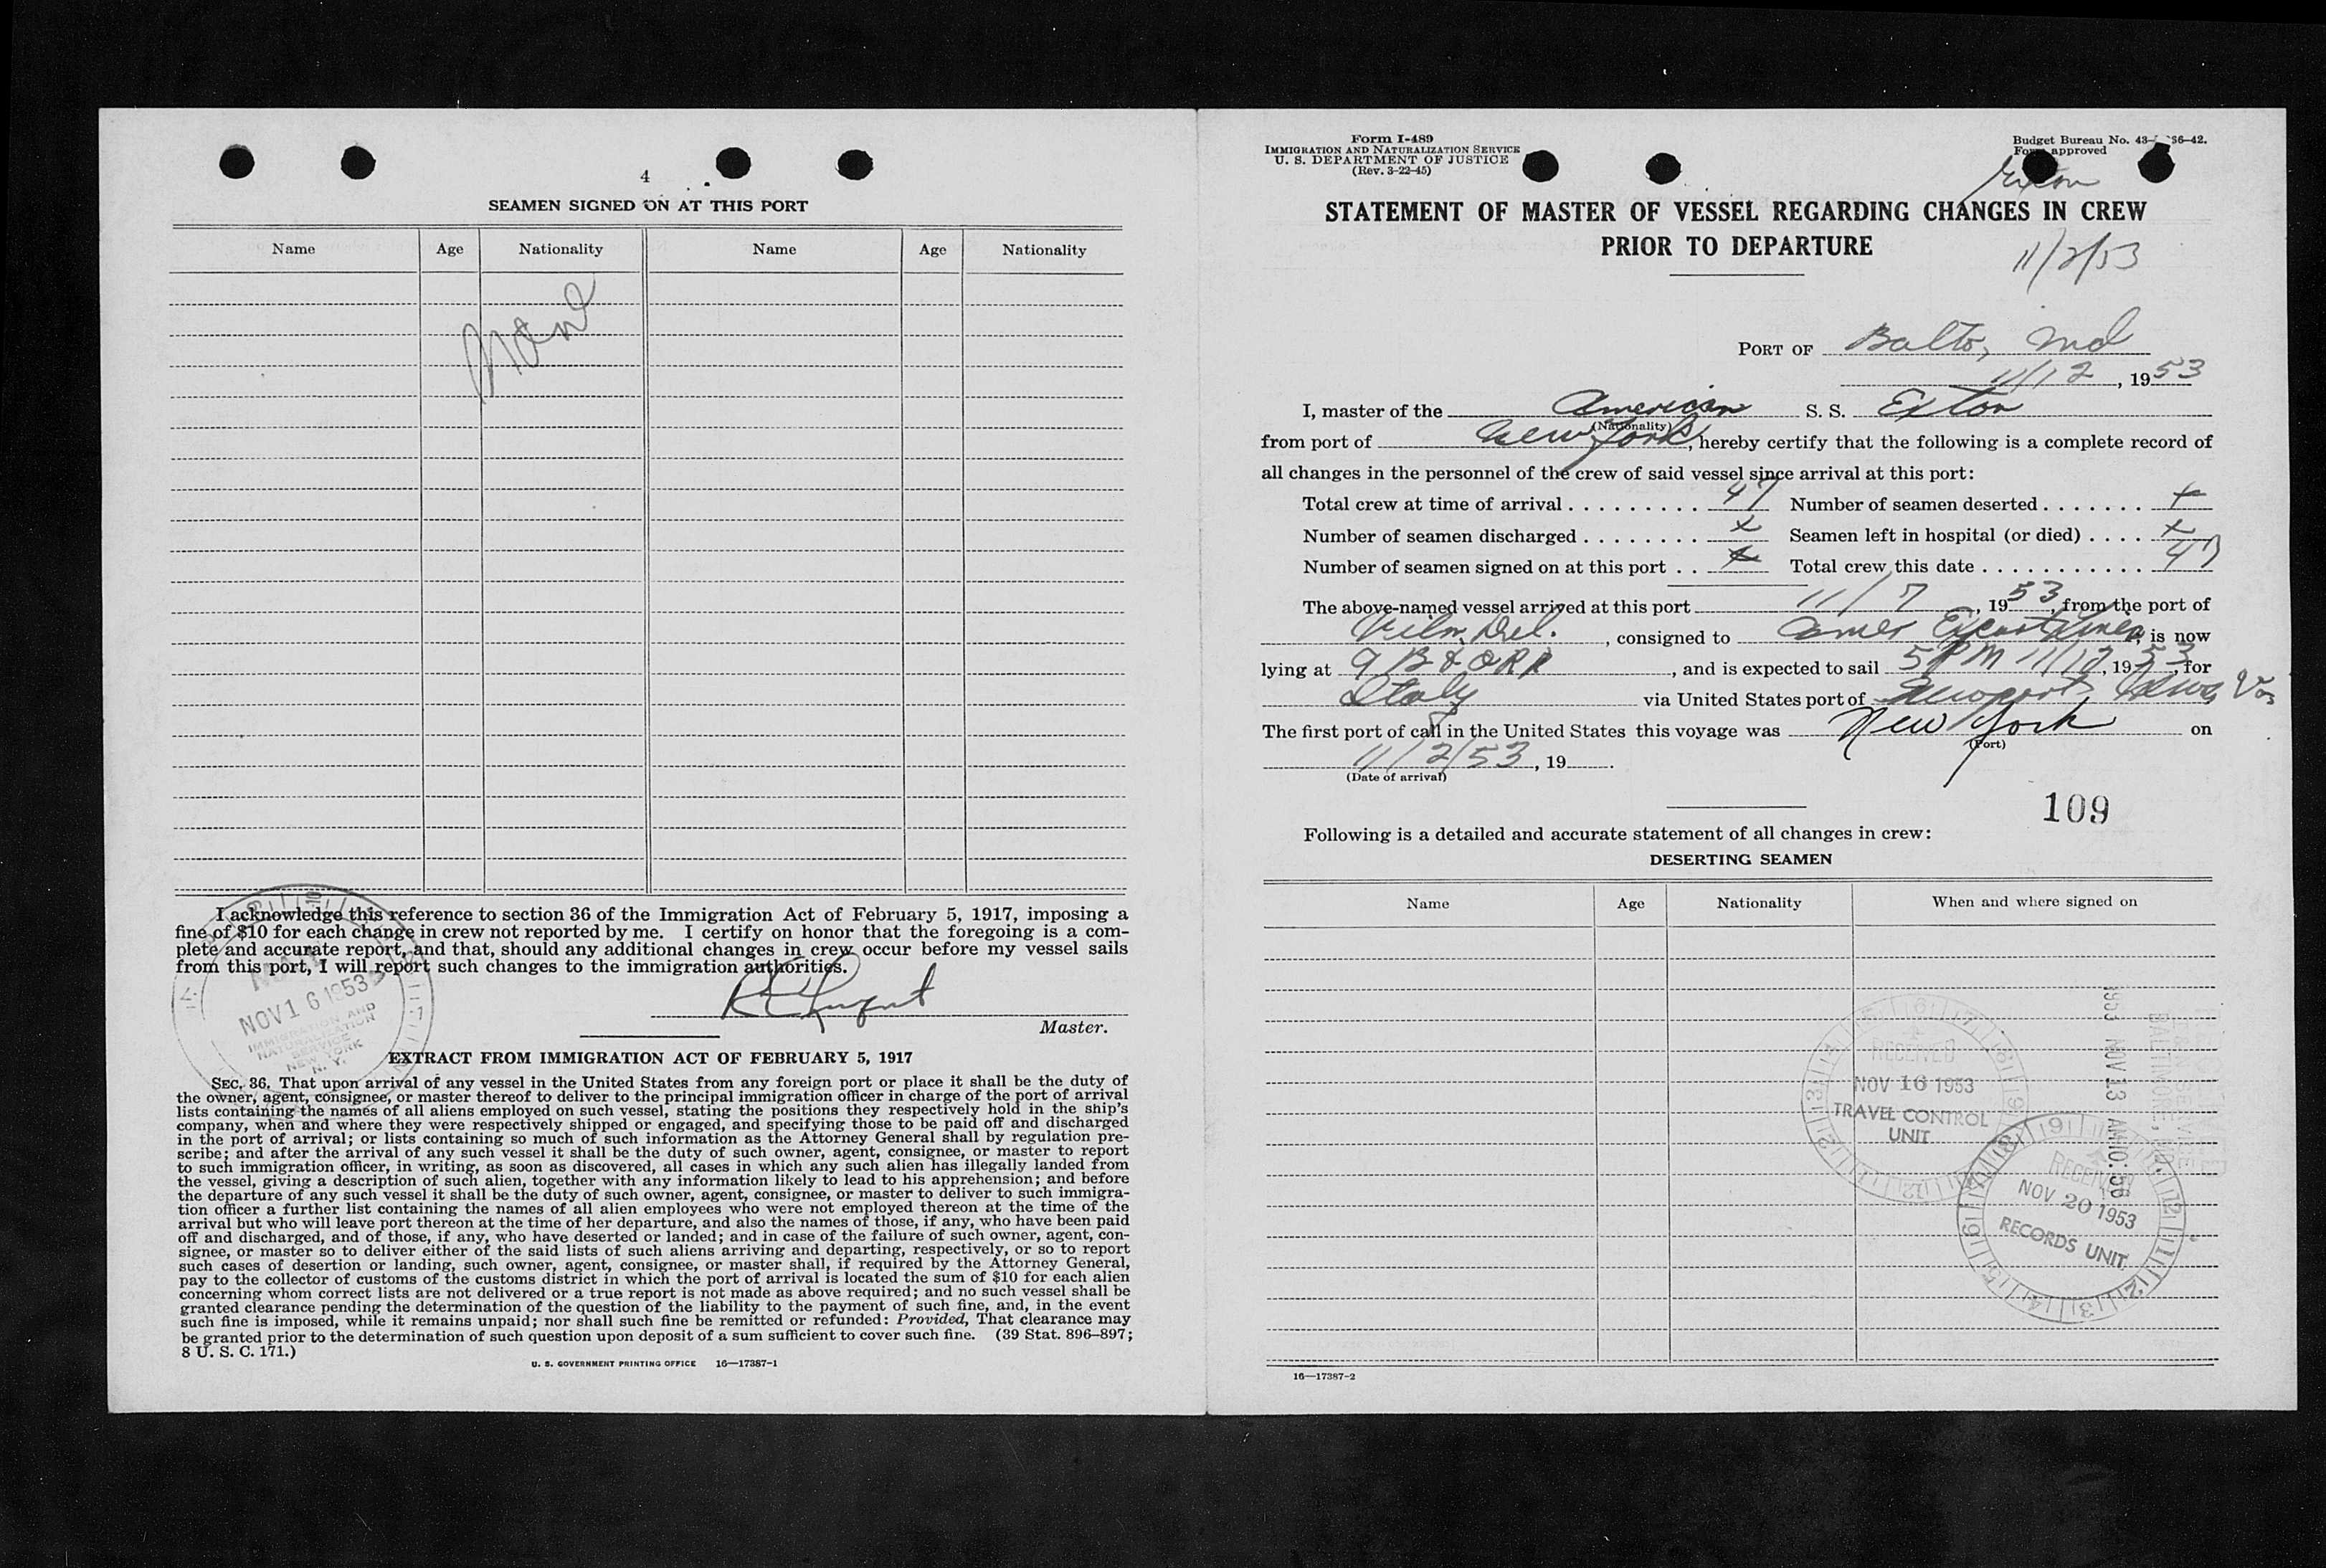 4
SEAMEN SIGNED ON AT THIS PORT
Name Age Nationality Name Age Nationality
None
I acknowledge this reference to section 36 of the Immigration Act of February 5, 1917, imposing a
fine of $10 for each change in crew not reported by me. I certify on honor that the foregoing is a com-
plete and accurate report, and that, should any additional changes in crew occur before my vessel sails
from this port, I will report such changes to the immigration authorities.
Master.
NOV 16 1953
IMMIGRATION AND
NATURALIZATION
SERVICE
NEW YORK
N. Y.
EXTRACT FROM IMMIGRATION ACT OF FEBRUARY 5, 1917
SEC. 36. That upon arrival of any vessel in the United States from any foreign port or place it shall be the duty of
the owner, agent, consignee, or master thereof to deliver to the principal immigration officer in charge of the port of arrival
lists containing the names of all aliens employed on such vessel, stating the positions they respectively hold in the ship's
company, when and where they were respectively shipped or engaged, and specifying those to be paid off and discharged
in the port of arrival; or lists containing so much of such information as the Attorney General shall by regulation pre-
scribe; and after the arrival of any such vessel it shall be the duty of such owner, agent, consignee, or master to report
to such immigration officer, in writing, as soon as discovered, all cases in which any such alien has illegally landed from
the vessel, giving a description of such alien, together with any information likely to lead to his apprehension; and before
the departure of any such vessel it shall be the duty of such owner, agent, consignee, or master to deliver to such immigra-
tion officer a further list containing the names of all alien employees who were not employed thereon at the time of the
arrival but who will leave port thereon at the time of her departure, and also the names of those, if any, who have been paid
off and discharged, and of those, if any, who have deserted or landed; and in case of the failure of such owner, agent, con-
signee, or master so to deliver either of the said lists of such aliens arriving and departing, respectively, or so to report
such cases of desertion or landing, such owner, agent, consignee, or master shall, if required by the Attorney General,
pay to the collector of customs of the customs district in which the port of arrival is located the sum of $10 for each alien
concerning whom correct lists are not delivered or a true report is not made as above required; and no such vessel shall be
granted clearance pending the determination of the question of the liability to the payment of such fine, and, in the event
such fine is imposed, while it remains unpaid; nor shall such fine be remitted or refunded: Provided, That clearance may
be granted prior to the determination of such question upon deposit of a sum sufficient to cover such fine. (39 Stat. 896–897;
8 U. S. C. 171.)
U. S. GOVERNMENT PRINTING OFFICE 16—17387-1
Form I-489
IMMIGRATION AND NATURALIZATION SERVICE
U. S. DEPARTMENT OF JUSTICE
(Rev. 3-22-45)
Budget Bureau No. 43- 36-42.
Form approved
Exton
STATEMENT OF MASTER OF VESSEL REGARDING CHANGES IN CREW
PRIOR TO DEPARTURE
11/2/53
PORT OF Balto, Md
11/12, 1953
I, master of the American S. S. Exton
(Nationality)
from port of New York, hereby certify that the following is a complete record of
all changes in the personnel of the crew of said vessel since arrival at this port:
Total crew at time of arrival 47 Number of seamen deserted x
Number of seamen discharged x Seamen left in hospital (or died) x
Number of seamen signed on at this port x Total crew this date 47
The above-named vessel arrived at this port 11/7, 1953, from the port of
Wilm, Del., consigned to Amer Export Lines, is now
lying at 9 B & O RR, and is expected to sail 5 PM 11/12, 1953, for
Italy via United States port of Newport News Va
The first port of call in the United States this voyage was New York on
(Port)
11/2/53, 19 .
(Date of arrival)
109
Following is a detailed and accurate statement of all changes in crew:
DESERTING SEAMEN
Name Age Nationality When and where signed on
RECEIVED
NOV 16 1953
TRAVEL CONTROL
UNIT
1953 NOV 13 AM 10:56
BALTIMORE, MD.
RECEIVED
NOV 20 1953
RECORDS UNIT
16—17387-2